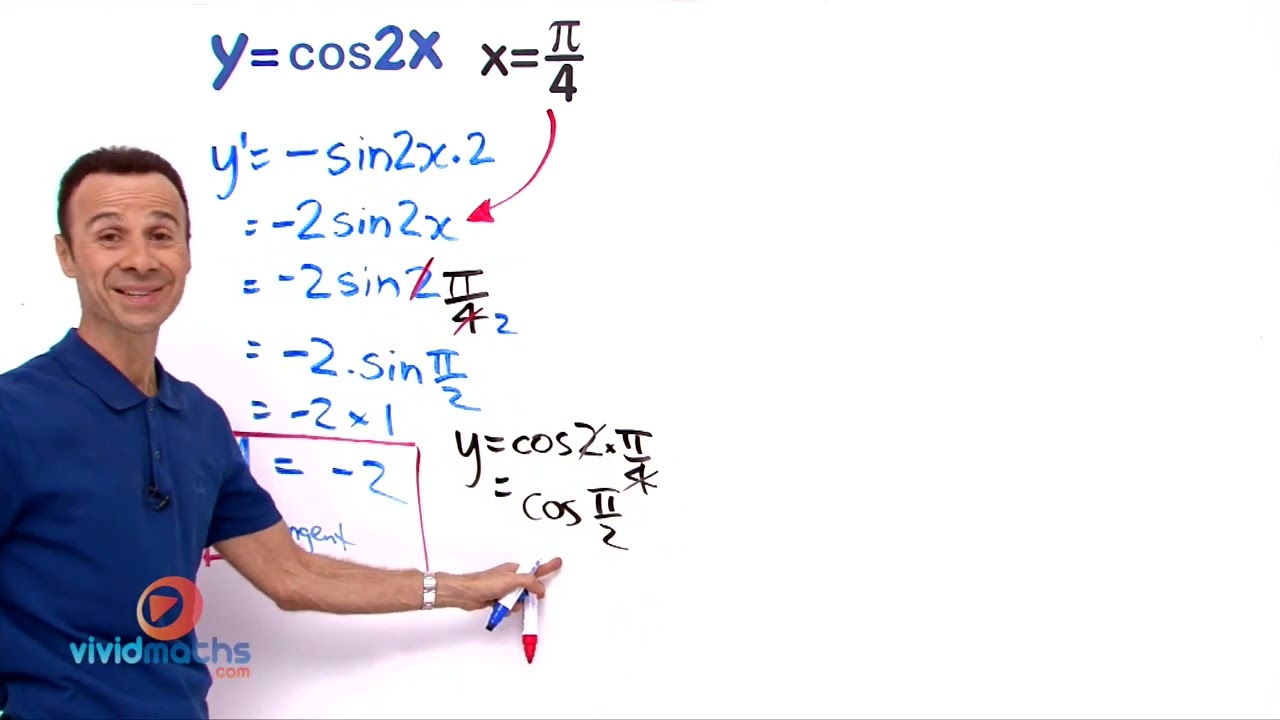 y=cos2x x=π/4
y'= -sin2x·2
= -2sin2x
= -2sin2 π/4 2
= -2·sin π/2
= -2×1
= -2
y=cos2×π/4
= cos π/2
vividmaths
.com